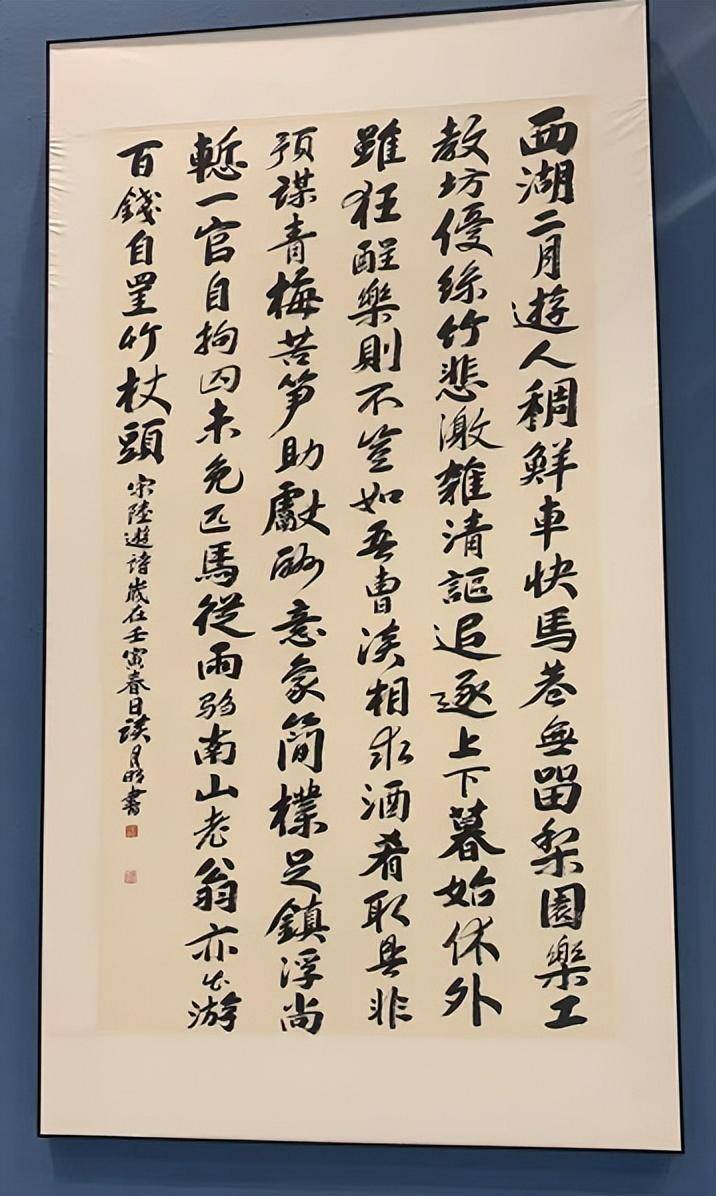 西湖二月遊人稠鮮車快馬巷無留梨園樂工
教坊優絲竹悲激雜清謳追逐上下暮始休外
雖狂醒樂則不豈如吾曹淡相求酒肴取具非
預謀青梅苦笋助獻酬意象簡樸足鎮浮尚
慙一官自拘囚未免匹馬從兩騶南山老翁亦出游
百錢自罣竹杖頭
宋陸遊詩歲在壬寅春日談月明書